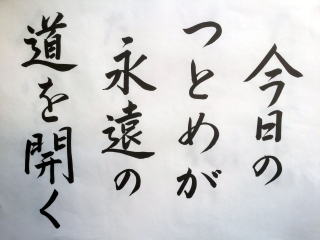 今日の
つとめが
永遠の
道を開く